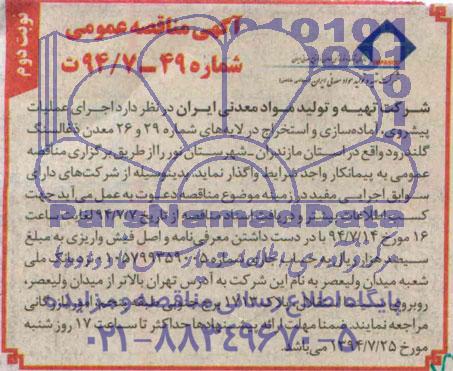 نوبت دوم
آگهی مناقصه عمومی
شماره ۴۹ - ۹۴/۷ ت
شرکت تهیه و تولید مواد معدنی ایران در نظر دارد اجرای عملیات
پیشروی، آماده‌سازی و استخراج در لایه‌های شماره ۲۹ و ۲۶ معدن ذغالسنگ
گلندرود واقع در استان مازندران - شهرستان نور را از طریق برگزاری مناقصه
عمومی به پیمانکار واجد شرایط واگذار نماید. بدینوسیله از شرکت‌های دارای
سوابق اجرایی مفید در زمینه موضوع مناقصه دعوت به عمل می‌آید جهت
کسب اطلاعات بیشتر و دریافت اسناد مناقصه از تاریخ ۹۴/۷/۷ لغایت ساعت
۱۶ مورخ ۹۴/۷/۱۴ با در دست داشتن معرفی‌نامه و اصل فیش واریزی به مبلغ
سیصد هزار ریال به حساب جاری شماره نزد بانک ملی
شعبه میدان ولیعصر به نام این شرکت به آدرس تهران بالاتر از میدان ولیعصر،
روبروی پلاک ۱۷۱۳ برج طبقه امور بازرگانی
مراجعه نمایند. ضمنا مهلت ارائه پیشنهادها حداکثر تا ساعت ۱۷ روز شنبه
مورخ ۱۳۹۴/۷/۲۵ می‌باشد.
ParsNamadData
پایگاه اطلاع رسانی مناقصه و مزایده
۰۲۱-۸۸۳۴۹۶۷۰-۵